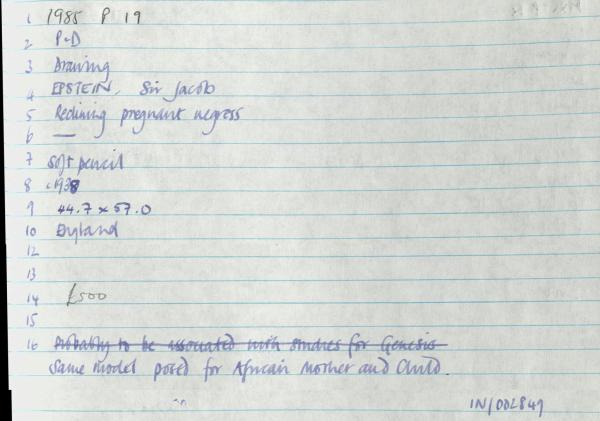 1 1985 P 19
2 P&D
3 Drawing
4 EPSTEIN, Sir Jacob
5 Reclining pregnant negress
6 —
7 Soft pencil
8 c1938
9 44.7 x 57.0
10 England
12
13
14 £500
15
16 Probably to be associated with studies for Genesis
Same model posed for African Mother and Child.
IN/002849